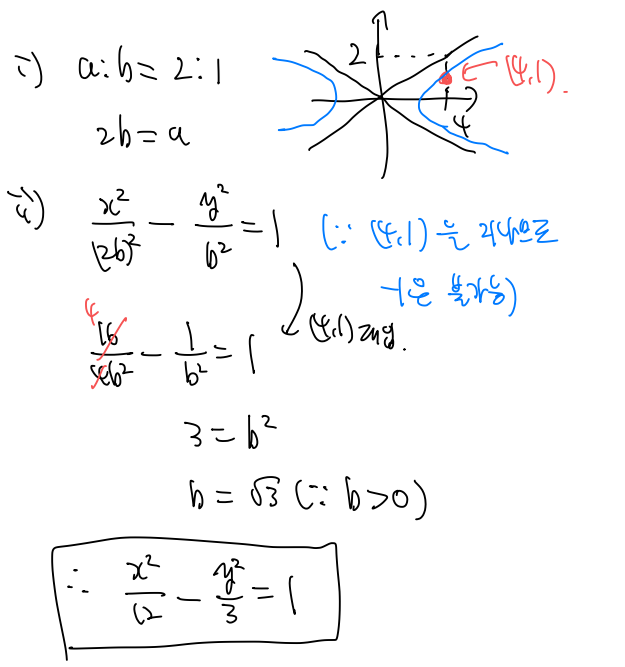 i) a:b = 2:1
2b = a
2
4
(4,1).
ii) x²/(2b)² - y²/b² = 1 (∵ (4,1)을 지나므로
-1은 불가능)
(4,1) 대입.
4
16/4b² - 1/b² = 1
3 = b²
b = √3 (∵ b>0)
∴ x²/12 - y²/3 = 1